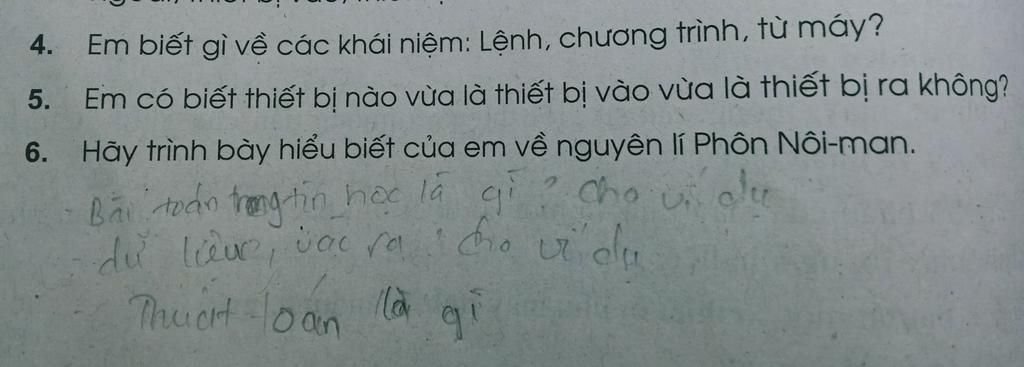 4. Em biết gì về các khái niệm: Lệnh, chương trình, từ máy?
5. Em có biết thiết bị nào vừa là thiết bị vào vừa là thiết bị ra không?
6. Hãy trình bày hiểu biết của em về nguyên lí Phôn Nôi-man.
- Bài toán trong tin học là gì? cho ví dụ
- dữ liệu, ra cho ví dụ
Thuật toán là gì